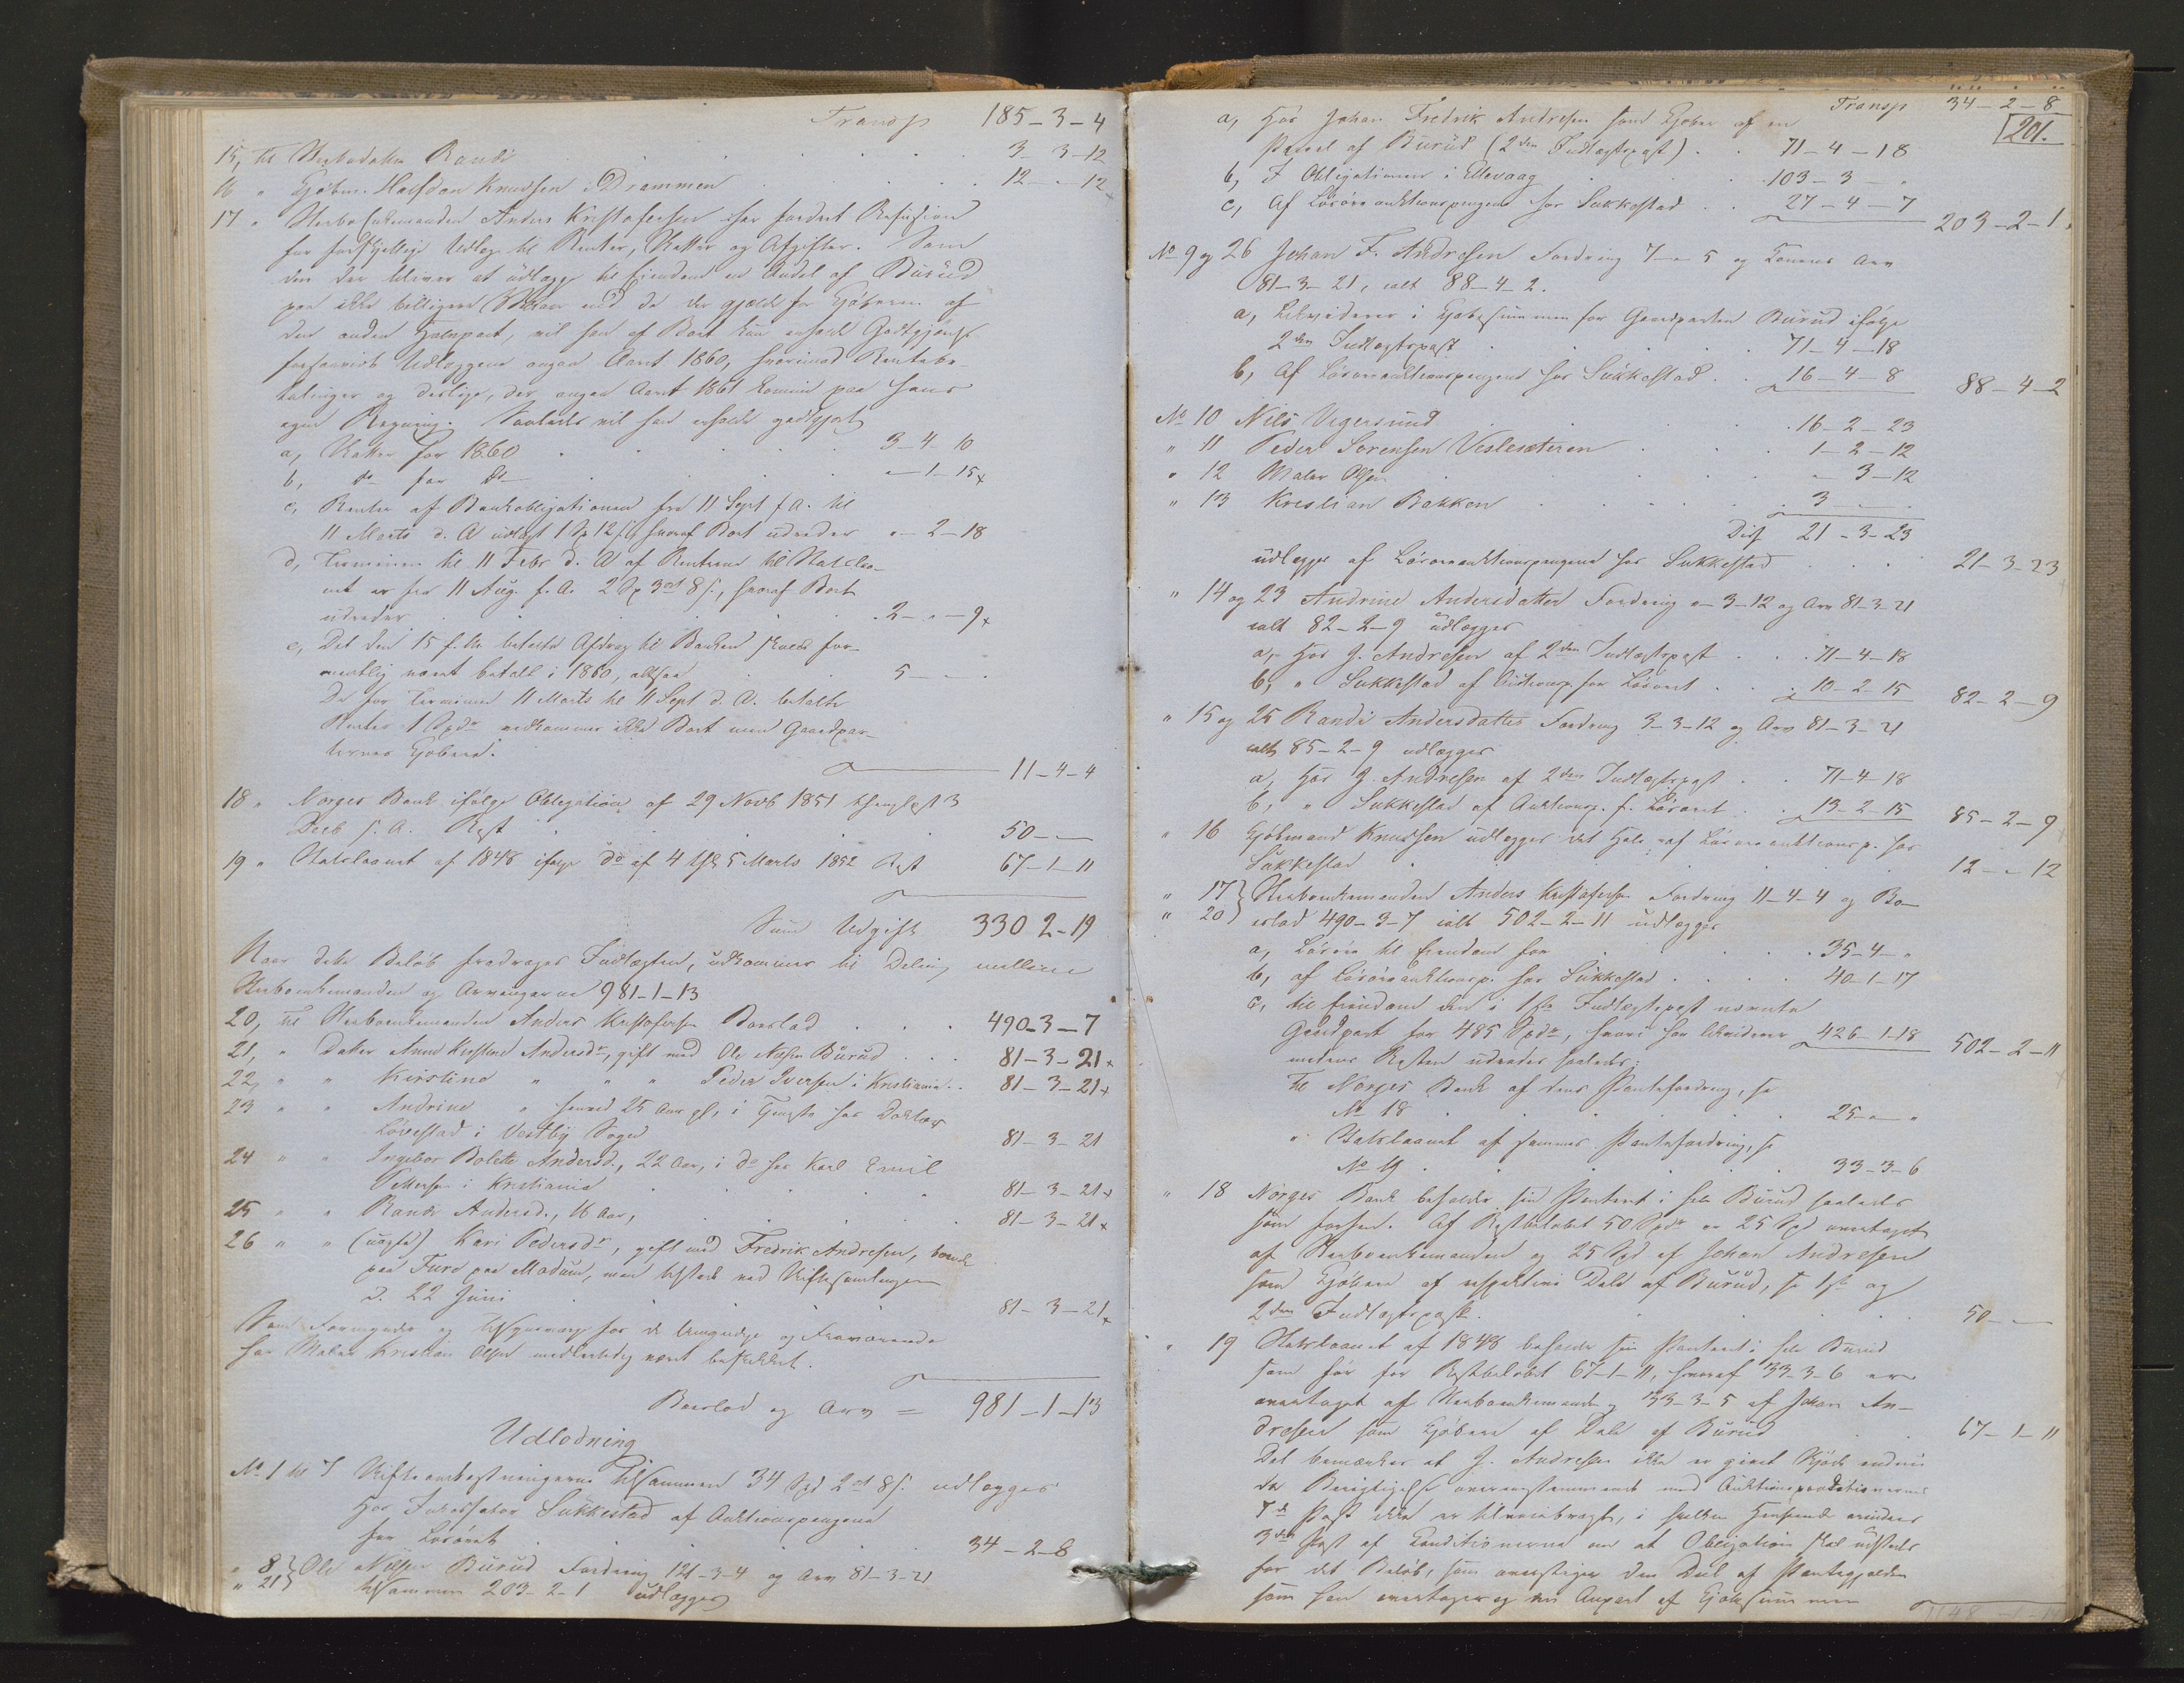 Transp 185-3-4
15, til Sterbodatter Randi 3-3-12
16 " Kjøbm. Halfdan Knudsen i Drammen 12-"-12
17 " Sterboenkemanden Anders Kristofersen har fordret Refusion
for forskjellige Udlæg til Renter, Skatter og Afgifter. Som
den der bliver at udlægge til Eiendom en Andel af Burud
paa ikke billigere Vilkaar end de der gjælde for Kjøberen af
den anden Halvpart, vil han af Boet kun erholde Godtgjørelse
forsaavidt Udlæggene angaa Aaret 1860, hvorimod Rentebe-
talinger og deslige, der angaa Aaret 1861 komme paa hans
egen Regning. Saaledes vil han erholde godtgjort
a, Skatter for 1860 3-4-10
b, do for do "-1-15
c, Renter af Bankobligationen fra 11 Sept f. A. til
11 Marts d. A. udlagt 1 Sp 12 s, hvoraf Boet udreder "-2-18
d, Terminen til 11 Febr d. A. af Renterne til Statslaa-
net er fra 11 Aug. f. A. 2 Sp 3 ort 8 s, hvoraf Boet
udreder 2-"-9
e, Det den 15 f. M. betalte Afdrag til Banken skulde for-
mentlig været betalt i 1860, altsaa 5-"-"
De for Terminen 11 Marts til 11 Sept d. A. betalte
Renter 1 Spdr vedkommer ikke Boet men Gaardpar-
ternes Kjøbere.
11-4-4
18 " Norges Bank ifølge Obligation af 29 Novb 1851 thinglæst 3
Decb s. A. Rest 50-"-"
19 " Statslaanet af 1848 ifølge do af 4 thl. 5 Marts 1852 Rest 67-1-11
Sum Udgift 330 2-19
Naar dette Beløb fradrages Indtægten, udkommer til Deling mellem
Sterboenkemanden og Arvingerne 981-1-13
20, til Sterboenkemanden Anders Kristofersen Boeslod 490-3-7
21, " Datter Anne Kirstine Andersdr, gift med Ole Nilsen Burud 81-3-21
22, " " Kirstine " " " Peder Iversen i Kristiania 81-3-21
23 " " Andrine " henved 25 Aar gl, i Tjeneste hos Doktor
Løvestad i Vestby Sogn 81-3-21
24 " " Ingebor Bolette Andersd., 22 Aar, i do hos Karl Emil
Pettersen i Kristiania 81-3-21
25 " " Randi Andersd., 16 Aar, 81-3-21
26 " " (uægte) Kari Pedersdr, gift med Fredrik Andresen, boende
paa Furo paa Modum, men tilstede ved Skiftesamlingen
d. 22 Juni 81-3-21
Som Formynder og Tilsynsværge for de Umyndige og Fraværende
har Maler Kristian Olsen midlertidig været beskikket.
Boeslod og Arv = 981-1-13
Udlodning
No 1 til 7 Skifteomkostningerne tilsammen 34 Spd 2 ort 8 s. udlægges
hos Inkassator Sukkestad af Auktionspengene
for Løsøret 34-2-8
" 8 } Ole Nilsen Burud Fordring 121-3-4 og Arv 81-3-21
" 21 } tilsammen 203-2-1 udlægges
Transp 34-2-8
201.
a, hos Johan Fredrik Andresen som Kjøber af en
Parcel af Burud (2den Indtægtspost) 71-4-18
b, I Obligationen i Ellevaag 103-3-"
c, Af Løsøreauktionspengene hos Sukkestad 27-4-7
203-2-1
No 9 og 26 Johan F. Andresen Fordring 7-"-5 og Konens Arv
81-3-21, ialt 88-4-2.
a, Likviderer i Kjøbesummen for Gaardparten Burud ifølge
2den Indtægtspost 71-4-18
b, Af Løsøreauktionspengene hos Sukkestad 16-4-8
88-4-2
No 10 Nils Vegersund 16-2-23
" 11 Peder Sørensen Veslesæteren 1-2-12
" 12 Maler Olsen "-3-12
" 13 Krestian Bakken 3-"-"
Disse 21-3-23
udlægges af Løsøreauktionspengene hos Sukkestad 21-3-23
" 14 og 23 Andrine Andersdatter Fordring "-3-12 og Arv 81-3-21
ialt 82-2-9 udlægges
a, hos J. Andresen af 2den Indtægtspost 71-4-18
b, " Sukkestad af Auktionsp. for Løsøret 10-2-15
82-2-9
" 15 og 25 Randi Andersdatter Fordring 3-3-12 og Arv 81-3-21
ialt 85-2-9 udlægges
a, hos J. Andresen af 2den Indtægtspost 71-4-18
b, " Sukkestad af Auktionsp. f. Løsøret 13-2-15
85-2-9
" 16 Kjøbmand Knudsen udlægges det Hele af Løsøreauktionsp. hos
Sukkestad 12-"-12
" 17 } Sterboenkemanden Anders Kristofersen Fordring 11-4-4 og Bo-
" 20 } eslod 490-3-7 ialt 502-2-11 udlægges
a, Løsøre til Eiendom for 35-4-"
b, af Løsøreauktionsp. hos Sukkestad 40-1-17
c, til Eiendom den i 1ste Indtægtspost nævnte
Gaardpart for 485 Spdr, hvori han likviderer 426-1-18
medens Resten udredes saaledes:
502-2-11
Til Norges Bank af dens Pantefordring, se
No 18 25-"-"
" Statslaanet af sammes Pantefordring, se
No 19 33-3-6
" 18 Norges Bank beholder sin Panteret i hele Burud saaledes
som forhen. Af Restbeløbet 50 Spdr er 25 Spd overtaget
af Sterboenkemanden og 25 Spd af Johan Andresen
som Kjøbere af respektive Dele af Burud, se 1ste og
2den Indtægtspost. 50-"-"
" 19 Statslaanet af 1848 beholder sin Panteret i hele Burud
som før for Restbeløbet 67-1-11, hvoraf 33-3-6 er
overtaget af Sterboenkemanden og 33-3-5 af Johan An-
dresen som Kjøbere af Dele af Burud 67-1-11
Det bemærkes at J. Andresen ikke er givet Skjøde endnu
da Berigtigelse overensstemmende med Auktionskonditionernes
7de Post ikke er tilveiebragt, i hvilken Henseende erindres
3die Post af Konditionerne om at Obligation skal udstedes
for det Beløb, som overstiger den Deel af Pantegjælden
som han overtager og en Anpart af Kjøbesummen
1148-1-